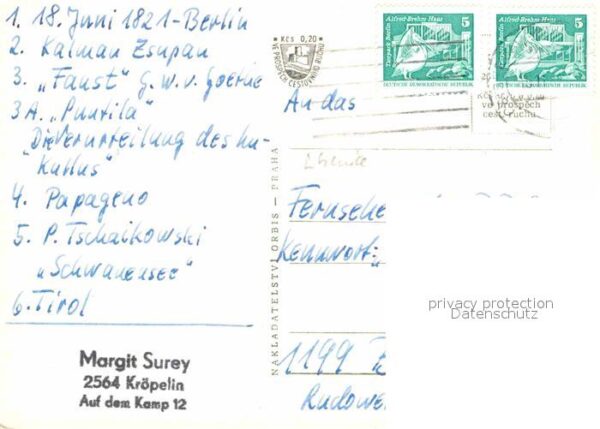 1. 18. Juni 1821-Berlin
2. Kalman Zsupan
3. „Faust" G. w. v. Goethe
3A. „Puntila"
„Die Verurteilung des Lu-
kullus"
4. Papageno
5. P. Tschaikowski
„Schwanensee"
6. Tirol
Margit Surey
2564 Kröpelin
Auf dem Kamp 12
NAKLADATELSTVÍ ORBIS – PRAHA
Kčs 0,20
VE PROSPĚCH CESTOVNÍHO RUCHU
Alfred-Brehm-Haus
Tierpark Berlin
5
DEUTSCHE DEMOKRATISCHE REPUBLIK
Alfred-Brehm-Haus
Tierpark Berlin
5
DEUTSCHE DEMOKRATISCHE REPUBLIK
ve prospěch
cest. ruchu
An das
Fernsehe
Kennwort:
1199
Rudowe
privacy protection
Datenschutz